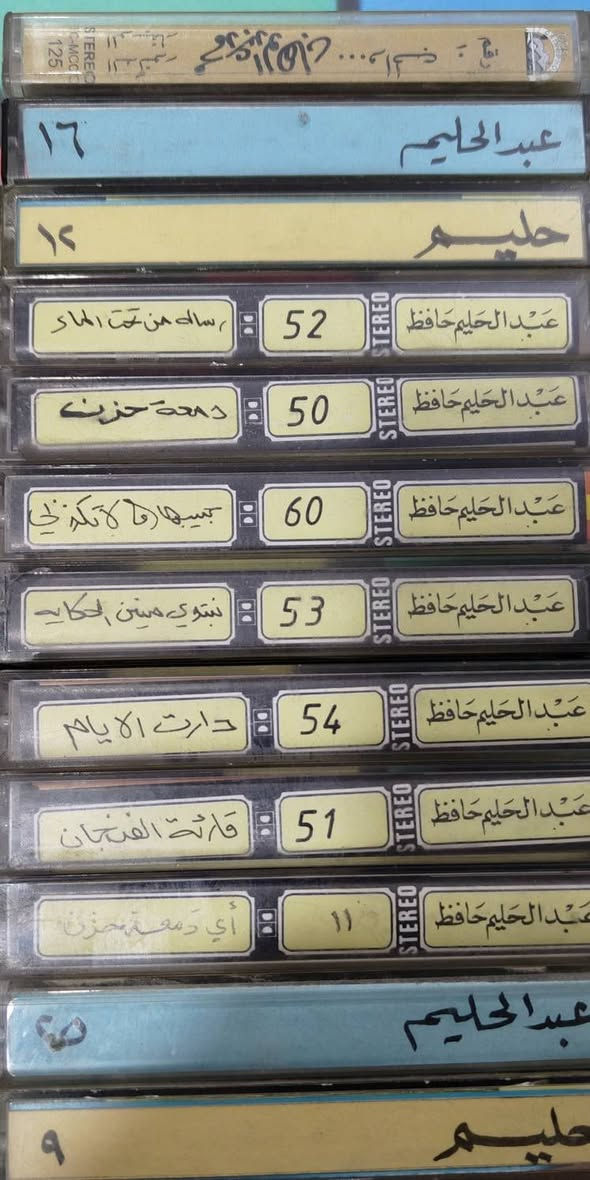 STEREO
C-MCC
125
عبد الحليم ١٦
حليم ١٢
عَبْد الحَليم حَافظ STEREO 52 رساله من تحت الماء
عَبْد الحَليم حَافظ STEREO 50 دمعة حزن
عَبْد الحَليم حَافظ STEREO 60 لا تكذبي
عَبْد الحَليم حَافظ STEREO 53 نبتدي منين الحكايه
عَبْد الحَليم حَافظ STEREO 54 دارت الايام
عَبْد الحَليم حَافظ STEREO 51 قارئة الفنجان
عَبْد الحَليم حَافظ STEREO ١١ أي دَمعة حزن
عبد الحليم
حليم ٩